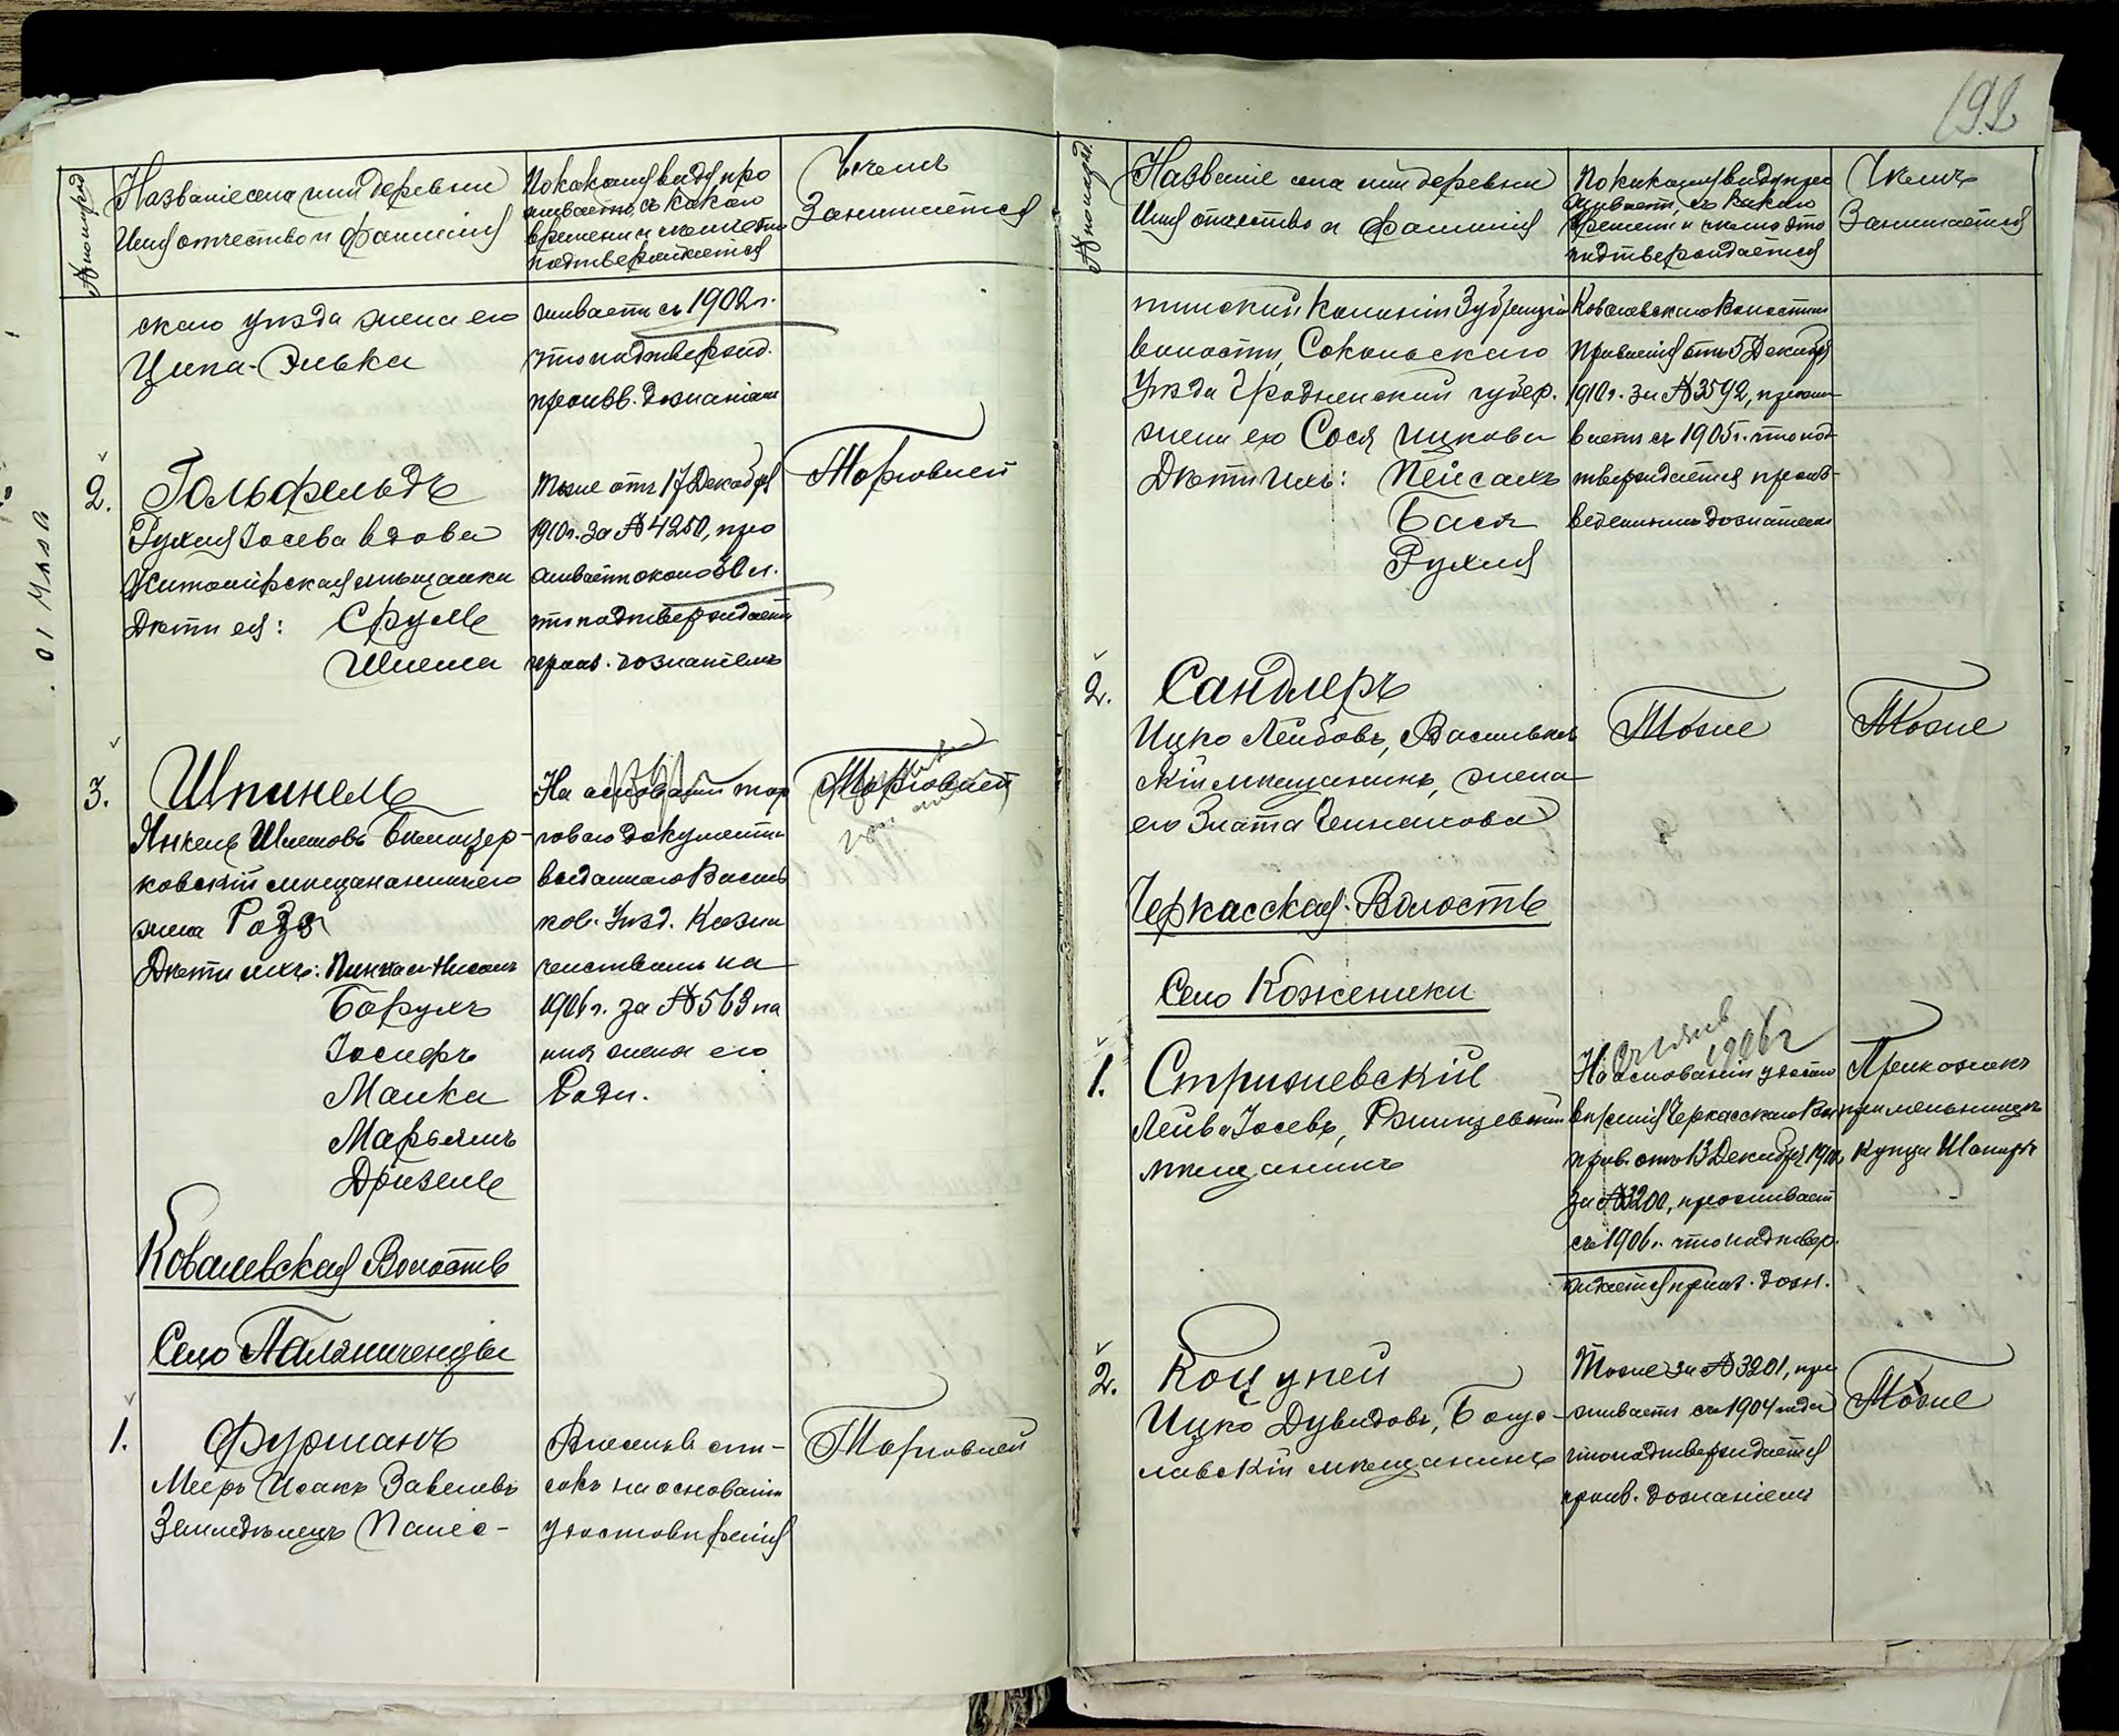 № по поряд.
Названіе села или деревни
Имя отчество и фамилія
По какому виду про
живаетъ, съ какого
времени и чемъ это
подтверждается
Чемъ
Занимается
скаго уѣзда жена его
Ципа-Элька
живаетъ съ 1902 г.
что подтвержд.
произв. дознаніемъ
2.
Гольфельдъ
Рухля Іосева вдова
Житомирская мѣщанка
Дѣти ея: Сруль
Шлема
Тоже отъ 17 Декабря
1910 г. за № 4250, про
живаетъ около 30 л.
что подтверждает.
произв. дознаніемъ
Торговлей
3.
Шпинель
Янкель Шлемовъ Бѣлоцер-
ковскій мѣщанинъ его
жена Розя
Дѣти ихъ: Пинкас-Нисонъ
Борухъ
Іосифъ
Малка
Марьямъ
Дризель
На основаніи тор
говаго документа
выданнаго Василь
ков. Уѣзд. Казна
чействомъ на
1906 г. за № 563 на
имя жены его
Рози.
Торговлей
Ковалевская Волость
Село Паляниченцы
1.
Фурманъ
Мееръ Исакъ Завелевъ
Земледѣлецъ Палес-
Внесенъ въ спи-
сокъ на основаніи
удостовѣренія
Торговлей
192
№ по поряд.
Названіе села или деревни
Имя отчество и фамилія
По какому виду про
живаетъ, съ какого
времени и чемъ это
подтверждается
Чѣмъ
Занимается
тинской Колоніи
волости, Сокольскаго
Уѣзда Гродненской губер.
жена его Сося Ицкова
Дѣти ихъ: Пейсахъ
Бася
Рухля
Ковалевскаго Волостного
Правленія отъ 5 Декабря
1910 г. за № 3592, прожи-
ваетъ съ 1905 г. что под-
тверждается произ-
веденнымъ дознаніемъ
2.
Сандлеръ
Ицко Лейбовъ, Васильков
скій мѣщанинъ, жена
его Злата
Тоже
Тоже
Черкасская Волость
Село Кожемики
1.
Стрижевскій
Лейба Іосевъ, Ржищевскій
мѣщанинъ
1906 г
На основаніи удосто
вѣренія Черкасскаго Вол
прав. отъ 13 Декабря 1910
за № 3200, проживает
съ 1906 г. что подтвер.
ждается произ. дозн.
Прикажчикъ
при мельницѣ
купца Шапиро
2.
Коцупей
Ицко Дувидовъ, Богу-
славскій мѣщанинъ
Тоже за № 3201, про
живаетъ съ 1904 года
что подтверждается
произв. дознаніемъ
Тоже